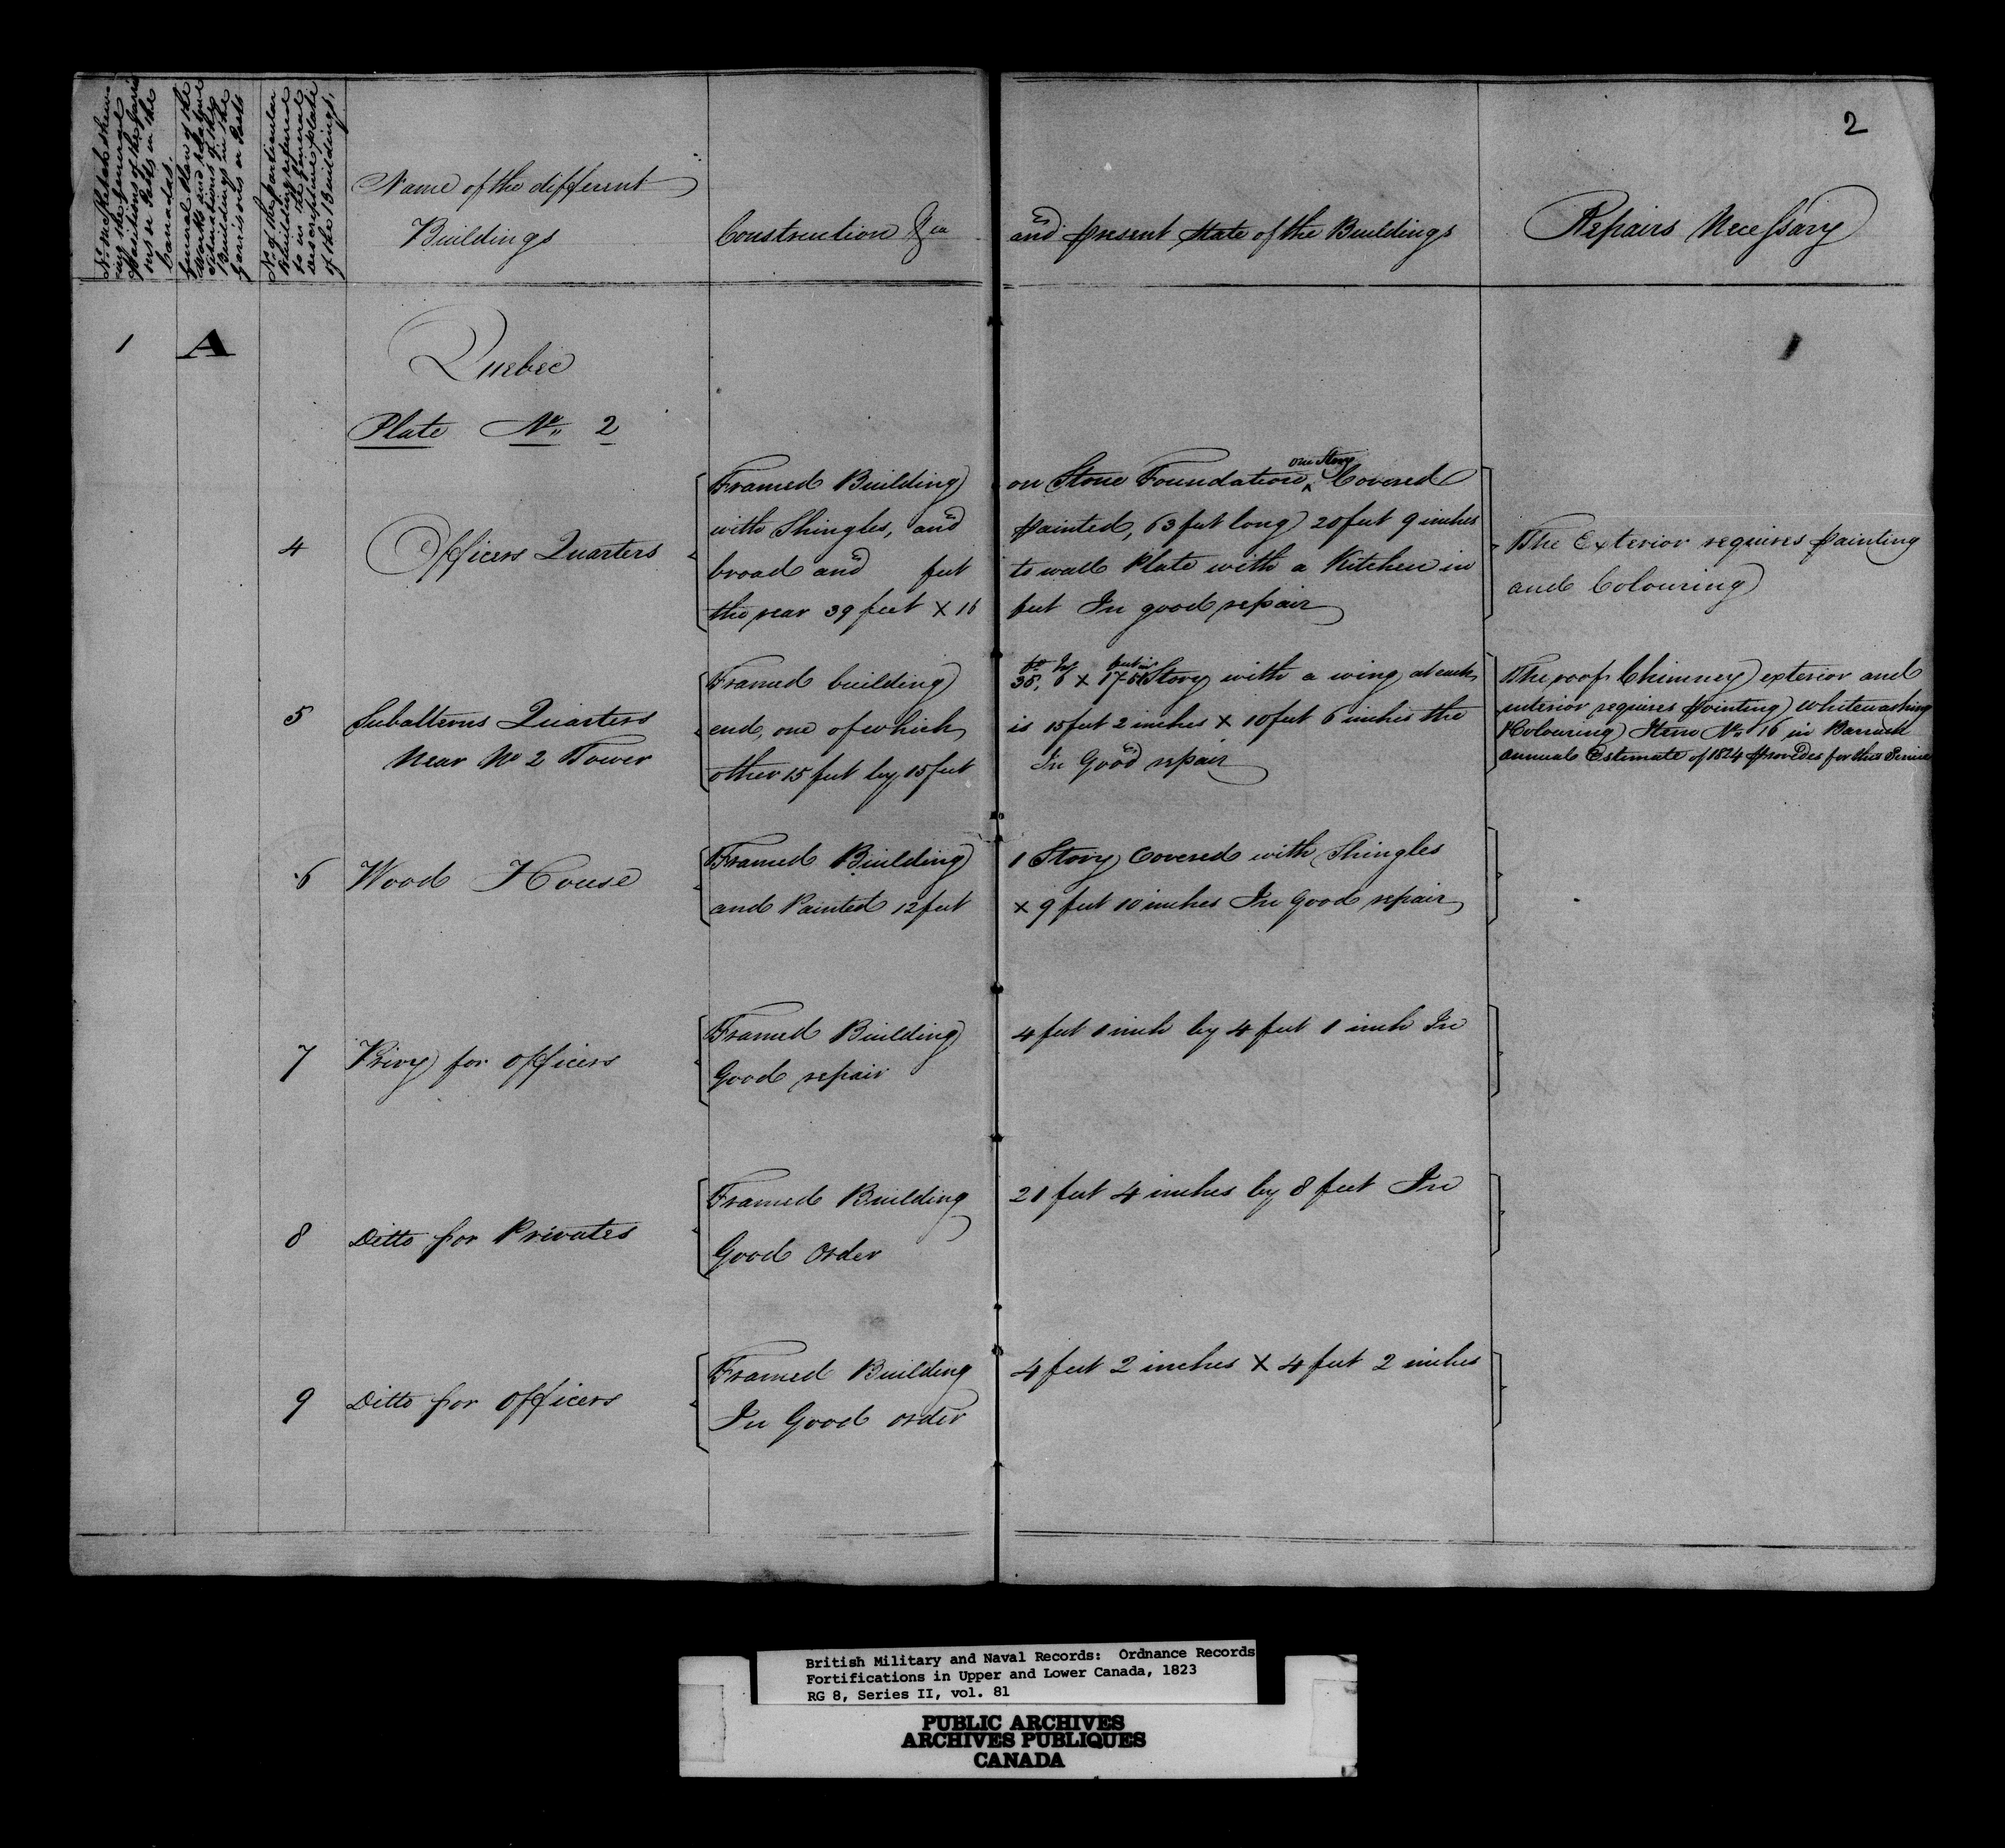 2
No. on Sketch shew-
ing the general
Positions of the Garri-
sons or Posts in the
Canadas.
General Plan of the
Works and relative
Situations of the
Buildings in the
Garrisons or Posts
No. of the particular
Building referred
to in the General
descriptive plate
of the Buildings.
Name of the different
Buildings
Construction &ca and present state of the Buildings
Repairs Necessary
1 A
Quebec
Plate No. 2
4 Officers Quarters
Framed Building on Stone Foundation, one Story Covered
with Shingles, and painted, 63 feet long 20 feet 9 inches
broad and feet to wall Plate with a Kitchen in
the rear 39 feet x 16 feet In good repair
The Exterior requires painting
and Colouring
5 Subalterns Quarters
Near No 2 Tower
Framed building Story with a wing at each
end, one of which is 15 feet 2 inches x 10 feet 6 inches the
other 15 feet by 15 feet In Good repair
The roof Chimney exterior and
interior requires pointing whitewashing
Colouring Item No. 16 in Barrack
annual Estimate of 1824 provides for this Service
6 Wood House
Framed Building 1 Story Covered with Shingles
and Painted 12 feet x 9 feet 10 inches In Good repair
7 Privy for officers
Framed Building 4 feet 1 inch by 4 feet 1 inch In
Good repair
8 Ditto for Privates
Framed Building 21 feet 4 inches by 8 feet In
Good Order
9 Ditto for officers
Framed Building 4 feet 2 inches x 4 feet 2 inches
In Good order
British Military and Naval Records: Ordnance Records
Fortifications in Upper and Lower Canada, 1823
RG 8, Series II, vol. 81
PUBLIC ARCHIVES
ARCHIVES PUBLIQUES
CANADA